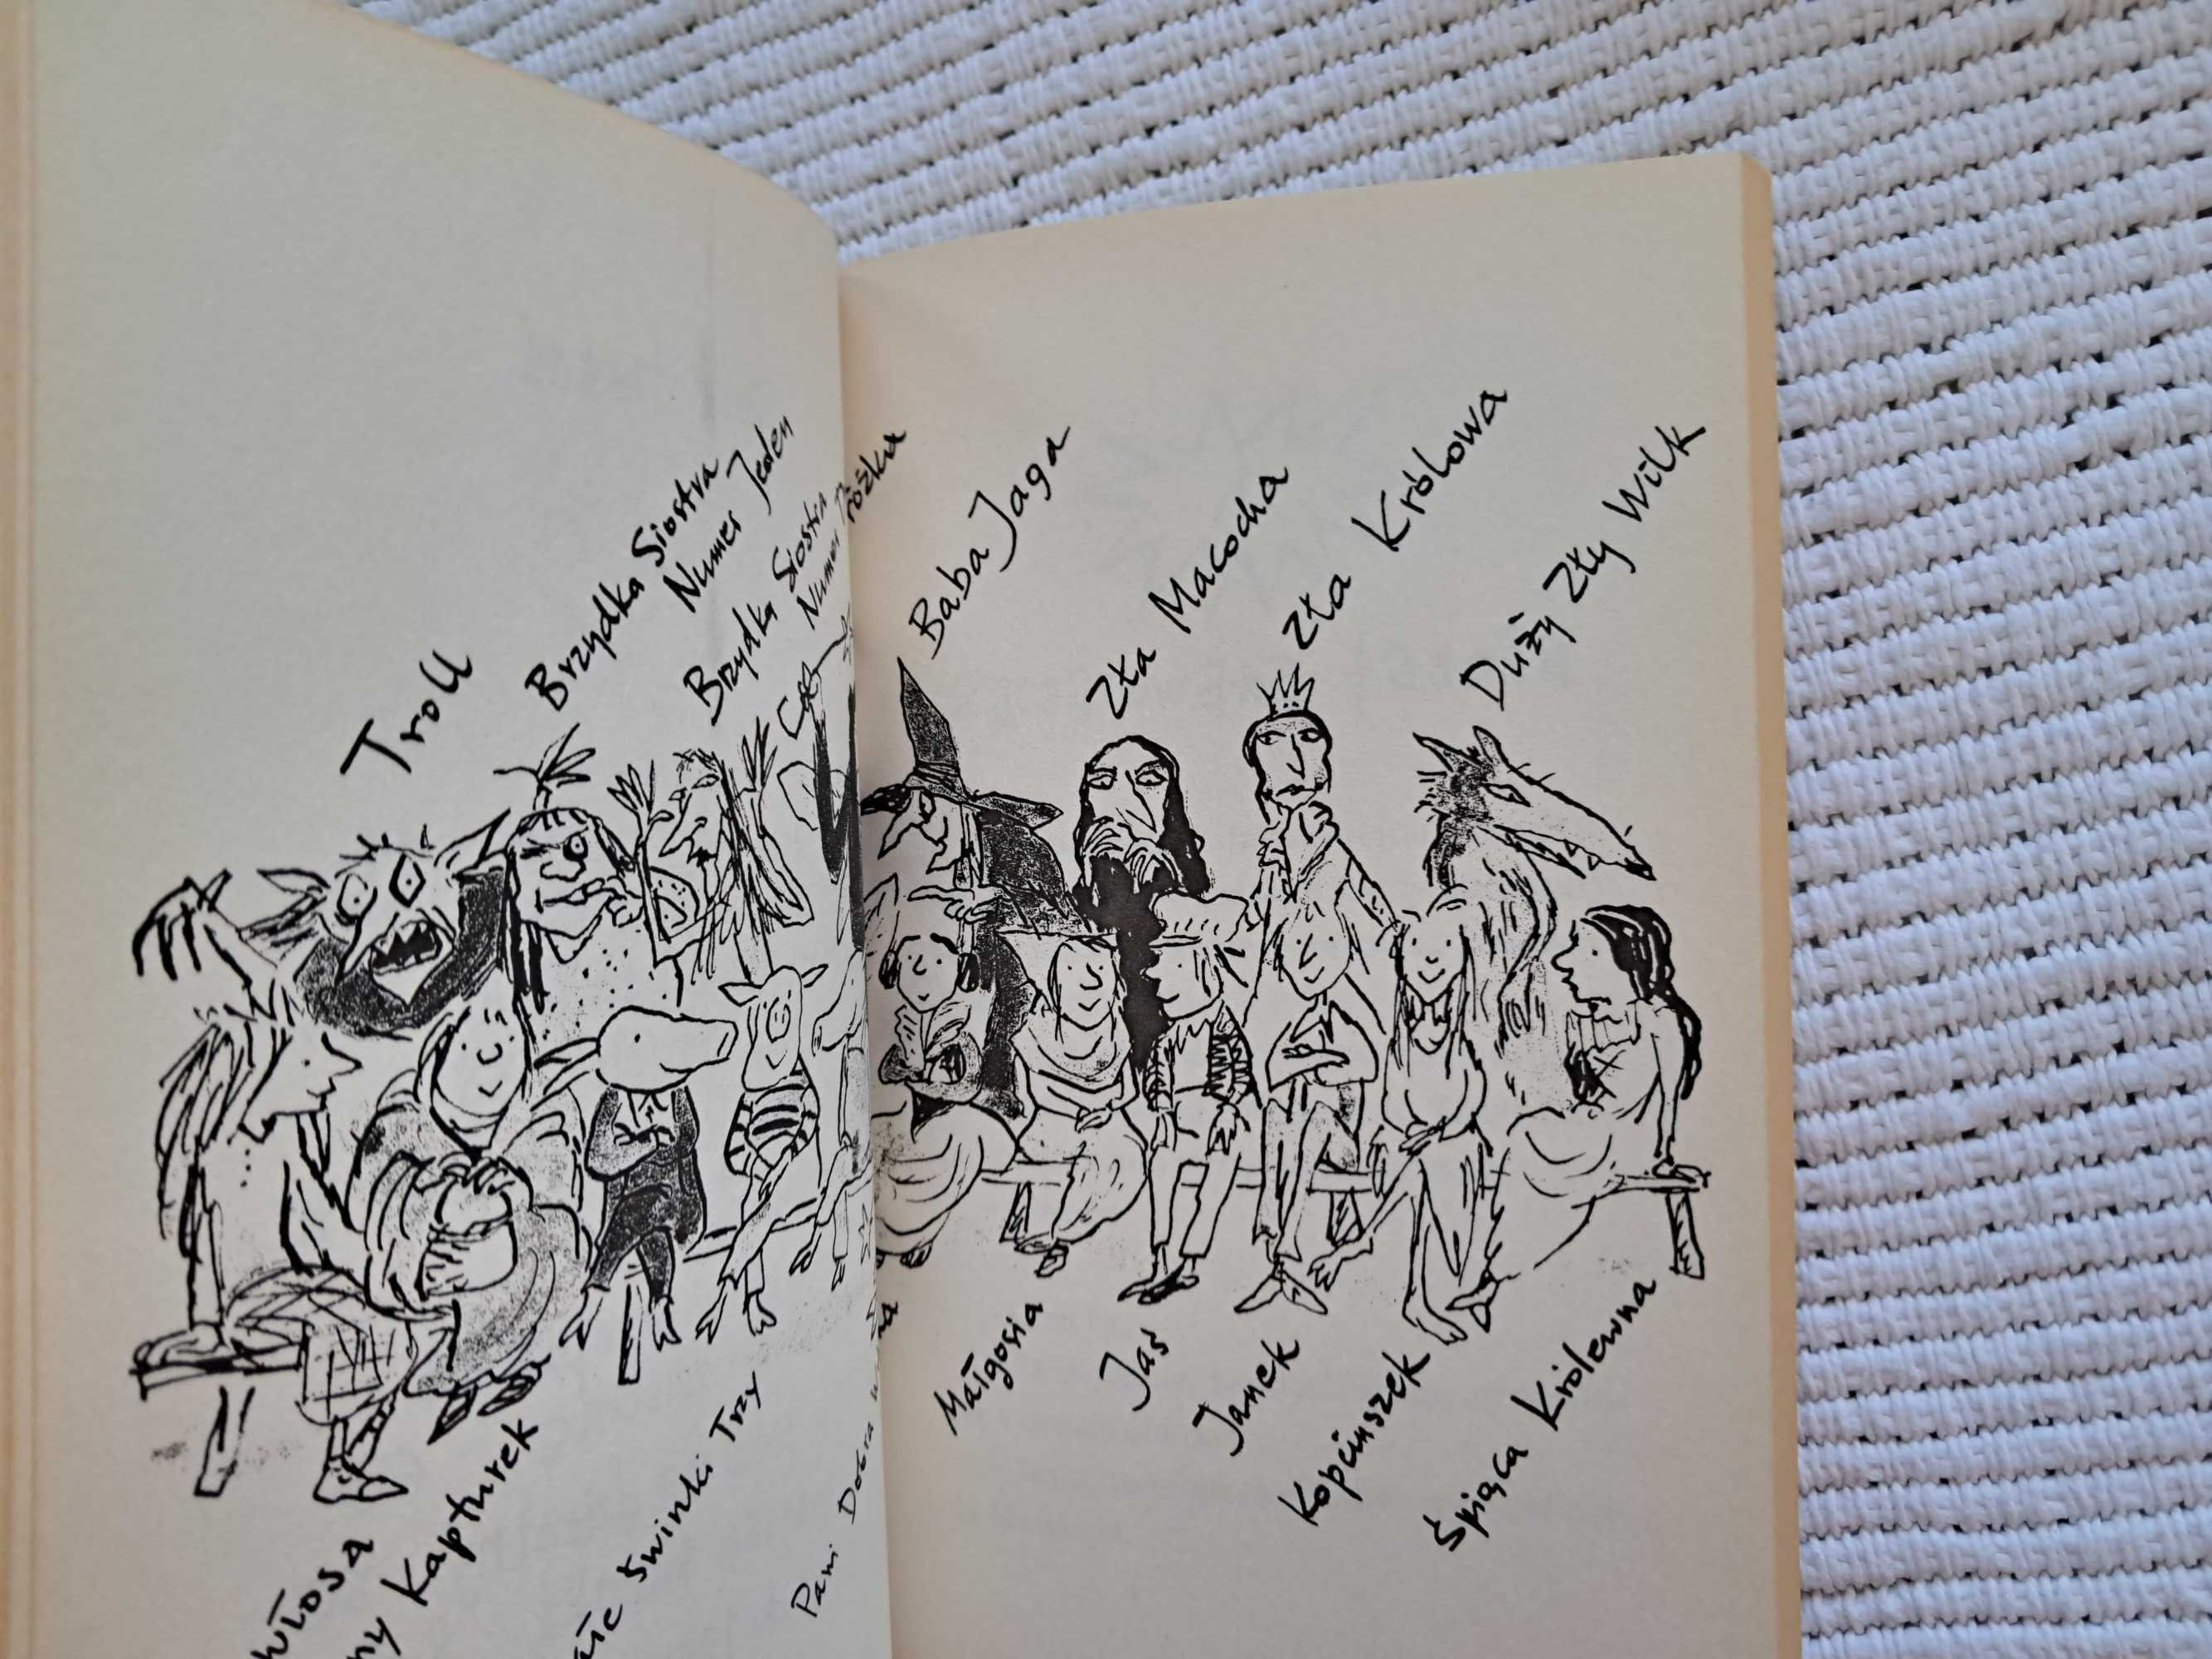 Troll
Brzydka Siostra
Numer Jeden
Brzydka Siostra
Numer
Baba Jaga
Zła Macocha
Zła Królowa
Duży Zły Wilk
Kapturek
Świnki Trzy
Pani Dobra
Małgosia
Jaś
Janek
Kopciuszek
Śpiąca Królewna